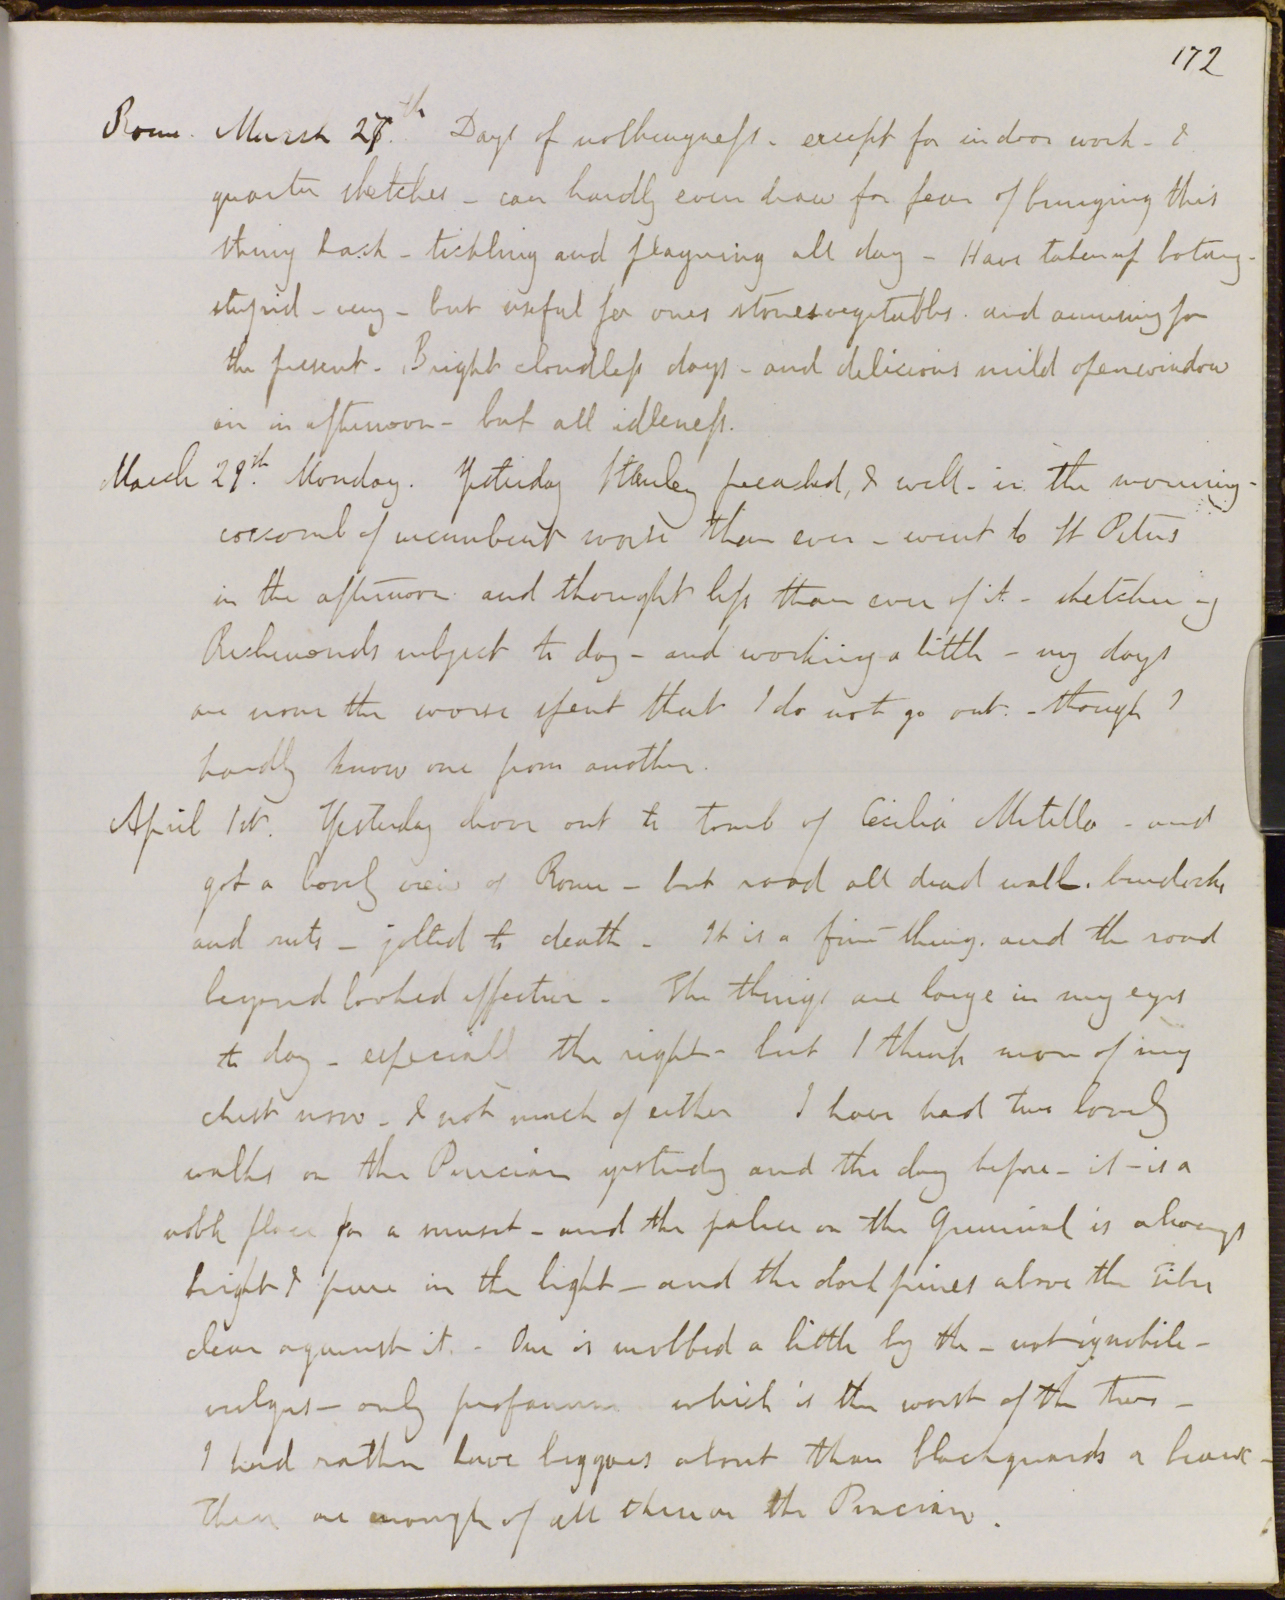 172
Rome. March 27th. Days of nothingness - except for indoor work - &
quarter sketches - can hardly even draw for fear of bringing this
thing back - tickling and plaguing all day - Have taken up botany -
stupid - very - but useful for ones stones & vegetables. and amusing for
the present - Bright cloudless days - and delicious mild open window
air in afternoon - but all idleness.
March 29th. Monday. Yesterday Stanley preached, & well - in the morning -
coxcomb of incumbent worse than ever - went to St Peters
in the afternoon and thought less than ever of it - sketching
Richmonds subject to day - and working a little - my days
are none the worse spent that I do not go out - though I
hardly know one from another.
April 1st. Yesterday drove out to tomb of Cecilia Metella - and
got a lovely view of Rome - but road all dead wall. burdocks
and ruts - jolted to death - It is a fine thing. and the road
beyond looked effective - The things are large in my eyes
to day - especiall the right - but I think more of my
chest now - & not much of either I have had two lovely
walks on the Pincian yesterday and the day before - it is a
noble place for a sunset - and the palace on the Quirinal is always
bright & pure in the light - and the dark pines above the Tiber
clear against it. - One is mobbed a little by the - not ignobile -
vulgus - only profanum which is the worst of the two -
I had rather have beggars about than blackguards a
There are enough of all there on the Pincian.